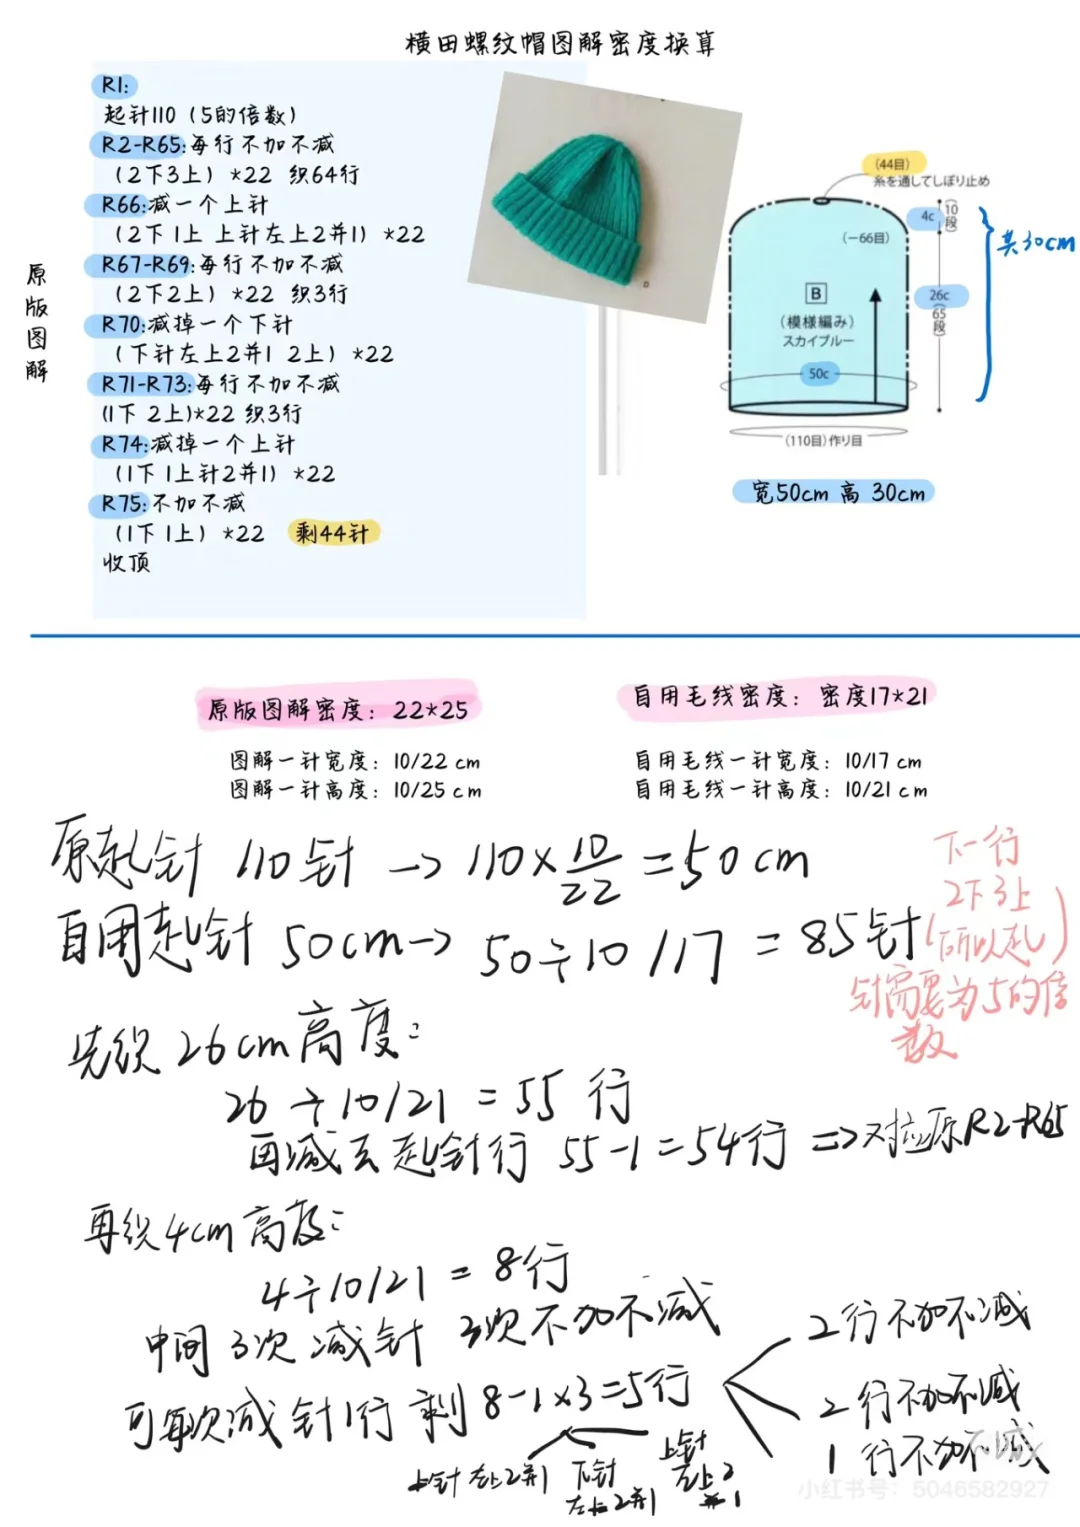 横田螺纹帽图解密度换算
原版图解
R1:
起针110（5的倍数）
R2-R65:每行不加不减
（2下3上）*22 织64行
R66:减一个上针
（2下 1上 上针左上2并1）*22
R67-R69:每行不加不减
（2下2上）*22 织3行
R70:减掉一个下针
（下针左上2并1 2上）*22
R71-R73:每行不加不减
(1下 2上)*22 织3行
R74:减掉一个上针
（1下 1上针2并1）*22
R75:不加不减
（1下 1上）*22 剩44针
收顶
(44目)
糸を通してしぼり止め
4c
(10段)
(−66目)
共30cm
B
(模様編み)
スカイブルー
26c
(65段)
50c
(110目)作り目
宽50cm 高 30cm
原版图解密度：22*25
图解一针宽度：10/22 cm
图解一针高度：10/25 cm
自用毛线密度：密度17*21
自用毛线一针宽度：10/17 cm
自用毛线一针高度：10/21 cm
原起针 110针 → 110×10/22=50cm
自用起针 50cm→ 50÷10/17 = 85针
下一行
2下3上
(所以起)
针需要为5的倍
数
先织26cm高度：
26÷10/21=55行
再减去起针行 55-1=54行 => 对应原R2-R65
再织4cm高度：
4÷10/21=8行
中间3次减针 3次不加不减
可每次减针1行 剩8-1×3=5行
2行不加不减
2行不加不减
1行不加不减
上针左上2并1
下针
左上2并1
上针
左上2
并1
小红书号：5046582927